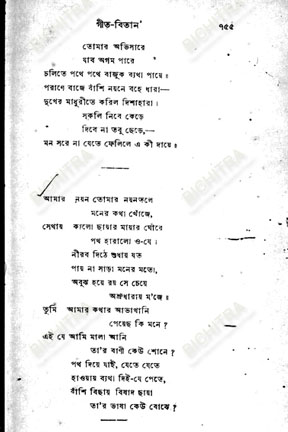 গীত-বিতান
৭৫৫
তোমার অভিসারে
যাব অগম পারে
চলিতে পথে পথে বাজুক ব্যথা পায়ে॥
পরাণে বাজে বাঁশি নয়নে বহে ধারা—
দুখের মাধুরীতে করিল দিশাহারা।
সকলি নিবে কেড়ে
দিবে না তবু ছেড়ে,—
মন সরে না যেতে ফেলিলে এ কী দায়ে॥
আমার নয়ন তোমার নয়নতলে
মনের কথা খোঁজে,
সেথায় কালো ছায়ার মায়ার ঘোরে
পথ হারালো ও-যে।
নীরব দিঠে শুধায় যত
পায় না সাড়া মনের মতো,
অবুঝ হয়ে রয় সে চেয়ে
অশ্রুধারায় ম'জে॥
তুমি আমার কথার আভাখানি
পেয়েছ কি মনে?
এই যে আমি মালা আনি
তা'র বাণী কেউ শোনে?
পথ দিয়ে যাই, যেতে যেতে
হাওয়ায় ব্যথা দিই-যে পেতে,
বাঁশি বিছায় বিষাদ ছায়া
তা'র ভাষা কেউ বোঝে?
BICHITRA